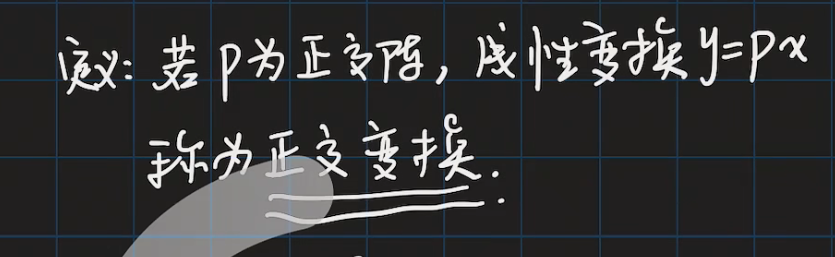 定义: 若P为正交阵, 线性变换y=Px
称为正交变换.